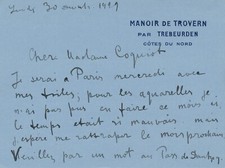 Lundi 30 août 1919
MANOIR DE TROVERN
PAR TREBEURDEN
CÔTES DU NORD
Chère Madame Coquiot
Je serai à Paris mercredi avec
mes toiles, pour les aquarelles je
n'ai pas pu en faire ce mois ci
le temps était si mauvais, mais
j'espère me rattraper le mois prochain
Veuillez par un mot au